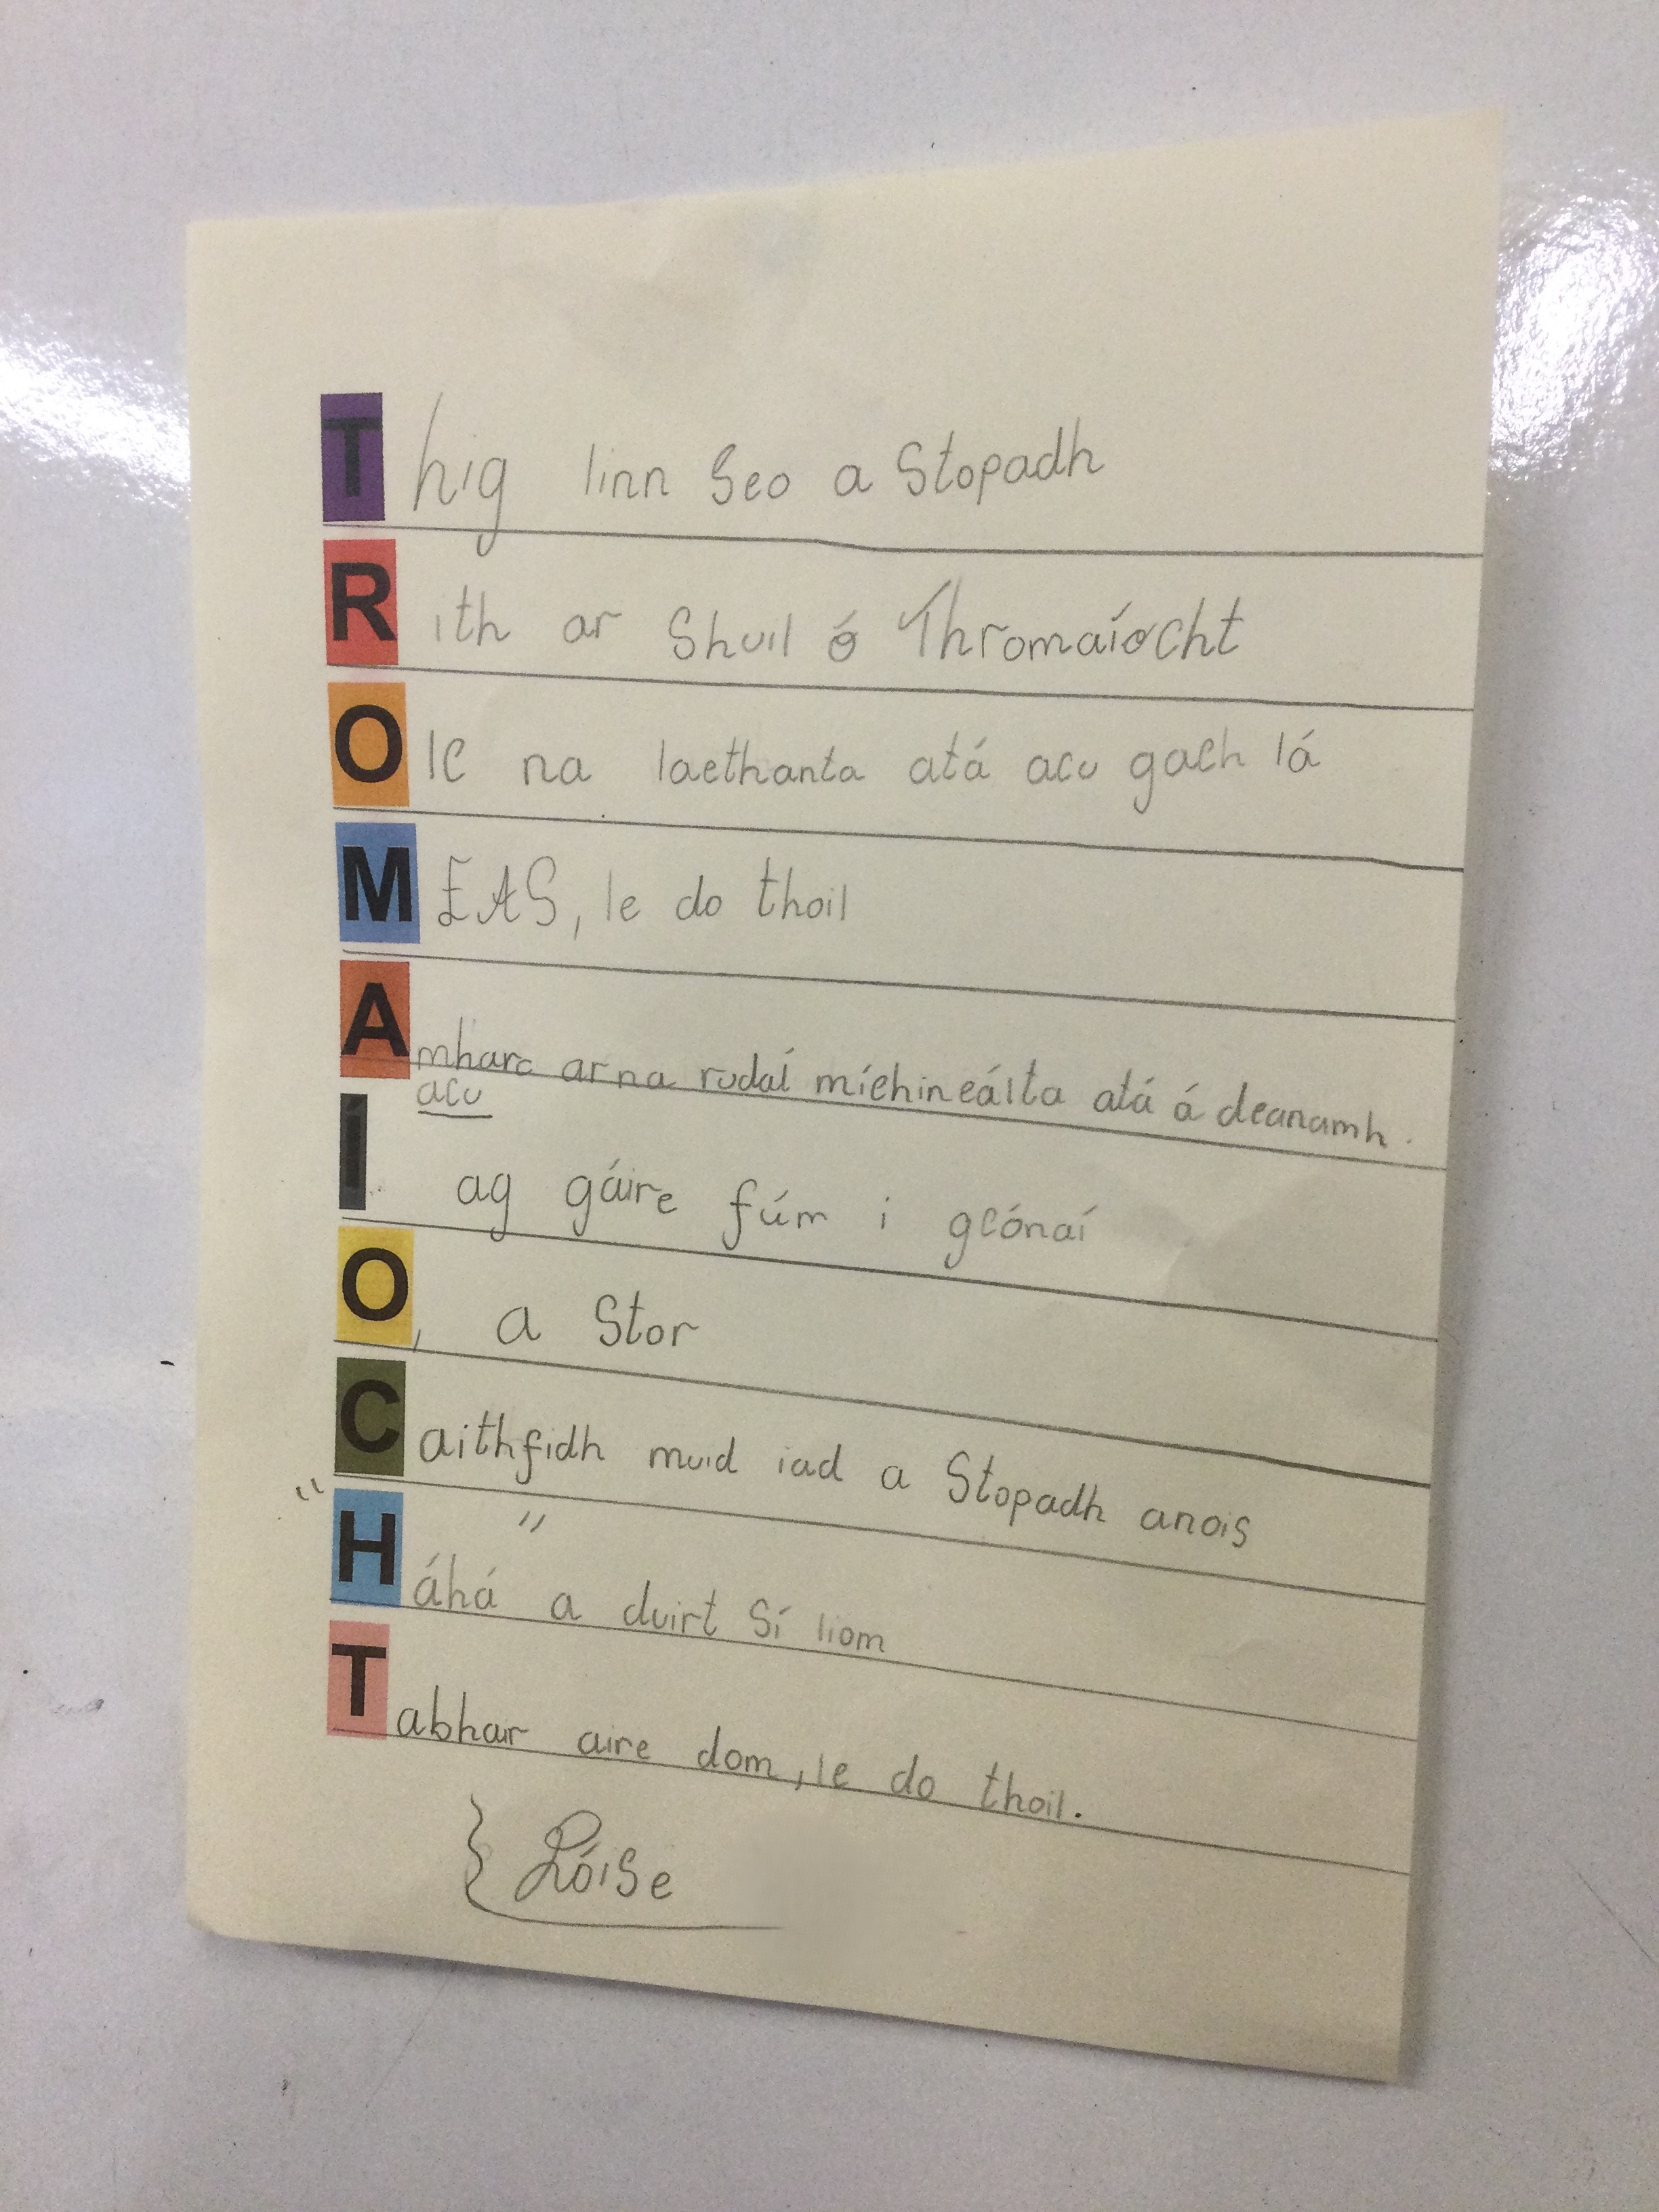 Thig linn Seo a Stopadh
Rith ar Shuil ó Thromaíocht
Olc na laethanta atá acu gach lá
MEAS, le do thoil
Amharc ar na rudaí míchineálta atá á deanamh.
acu
I ag gáire fúm i gcónaí
O, a Stor
Caithfidh muid iad a Stopadh anois
"Háhá" a duirt Sí liom
Tabhair aire dom, le do thoil.
Róise